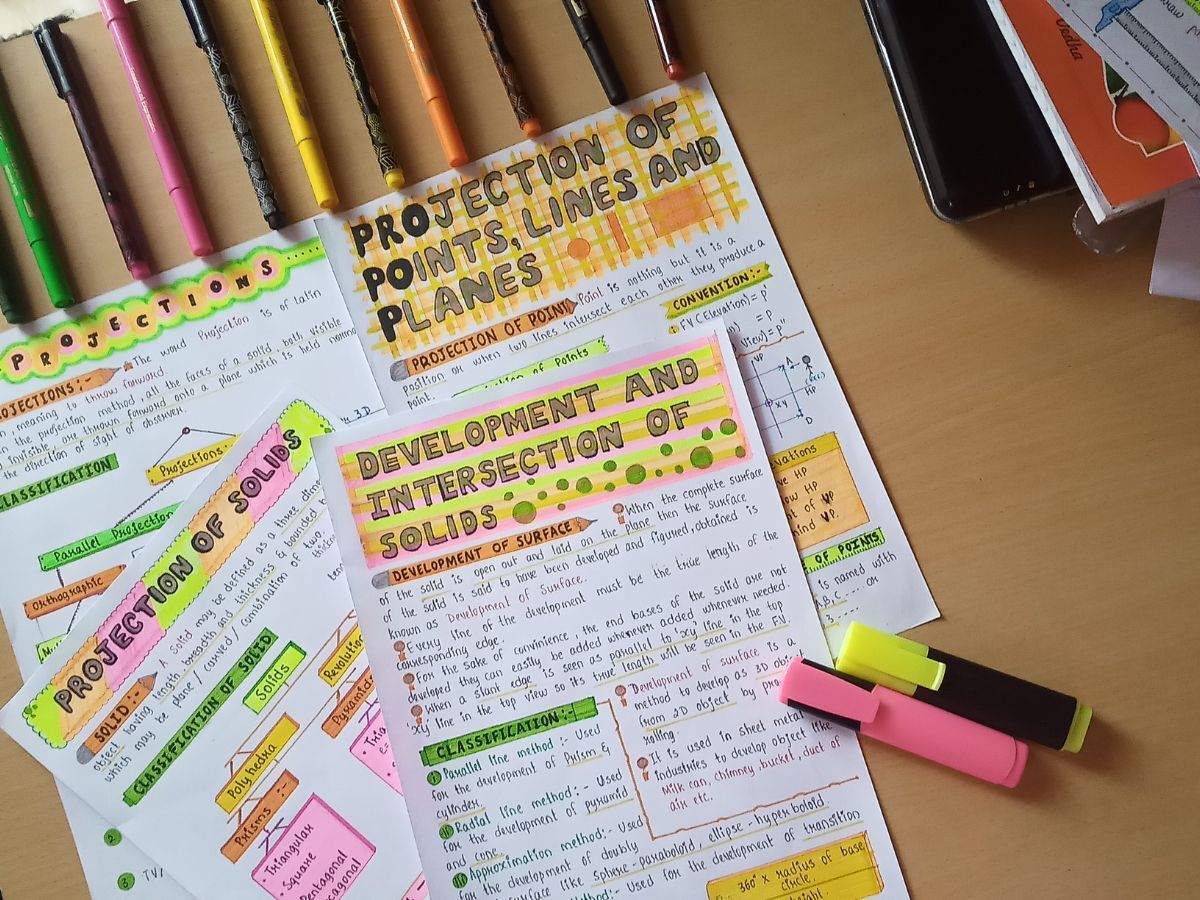 PROJECTIONS
OJECTIONS:-
The word Projection is of latin
meaning to throw forward.
the projection method, all the faces of a solid, both visible
invisible, are thrown forward onto a plane which is held normal
the direction of sight of observer.
CLASSIFICATION
Projections:
Parallel Projection
Orthographic
2
3
TV
PROJECTION OF
POINTS, LINES AND
PLANES
PROJECTION OF POINT
Point is nothing but it is a
position or when two lines intersect each other they produce a
point.
of Points
CONVENTION:-
FV (Elevation) = p'
= p
view) = p"
VP
A
xy
HP
D
ations
ve HP
ow HP
t of VP
ind VP.
OF POINTS
is named with
A,b,C ---- or
PROJECTION OF SOLIDS
SOLID:-
A Solid may be defined as a three dimen
object having length, breadth and thickness & bounded b
which may be plane / curved / combination of two,
CLASSIFICATION OF SOLID
Solids
Polyhedra
Revolution
Prisms :-
Pyramids
Triangular
• Square
Pentagonal
DEVELOPMENT AND
INTERSECTION OF
SOLIDS
DEVELOPMENT OF SURFACE
When the complete surface
of the solid is open out and laid on the plane then the surface
of the solid is said to have been developed and figure, obtained is
known as Development of Surface.
Every line of the development must be the true length of the
corresponding edge.
For the sake of convinience, the end bases of the solid are not
developed they can easily, be added whenever added whenever needed
When a slunt edge is seen as parallel to 'xy' line in the top
xy line in the top view so its true length will be seen in the F.V.
CLASSIFICATION:-
i Parallel line method :- Used
for the development of Prism &
cylinder.
ii Radial line method:- Used
for the development of pyramid
and cone.
iii Approximation method:- Used
for the development of doubly
surface like Sphere-paraboloid, ellipse-hyperboloid
Method:- Used for the development of transition
Development of surface is a
method to develop as 3D obj-
from 2D object by
rolling.
It is used in sheet metal
industries to develop object like
Milk can, chimney, bucket, duct of
air etc.
360° x radius of base
circle.
height.
Vedha